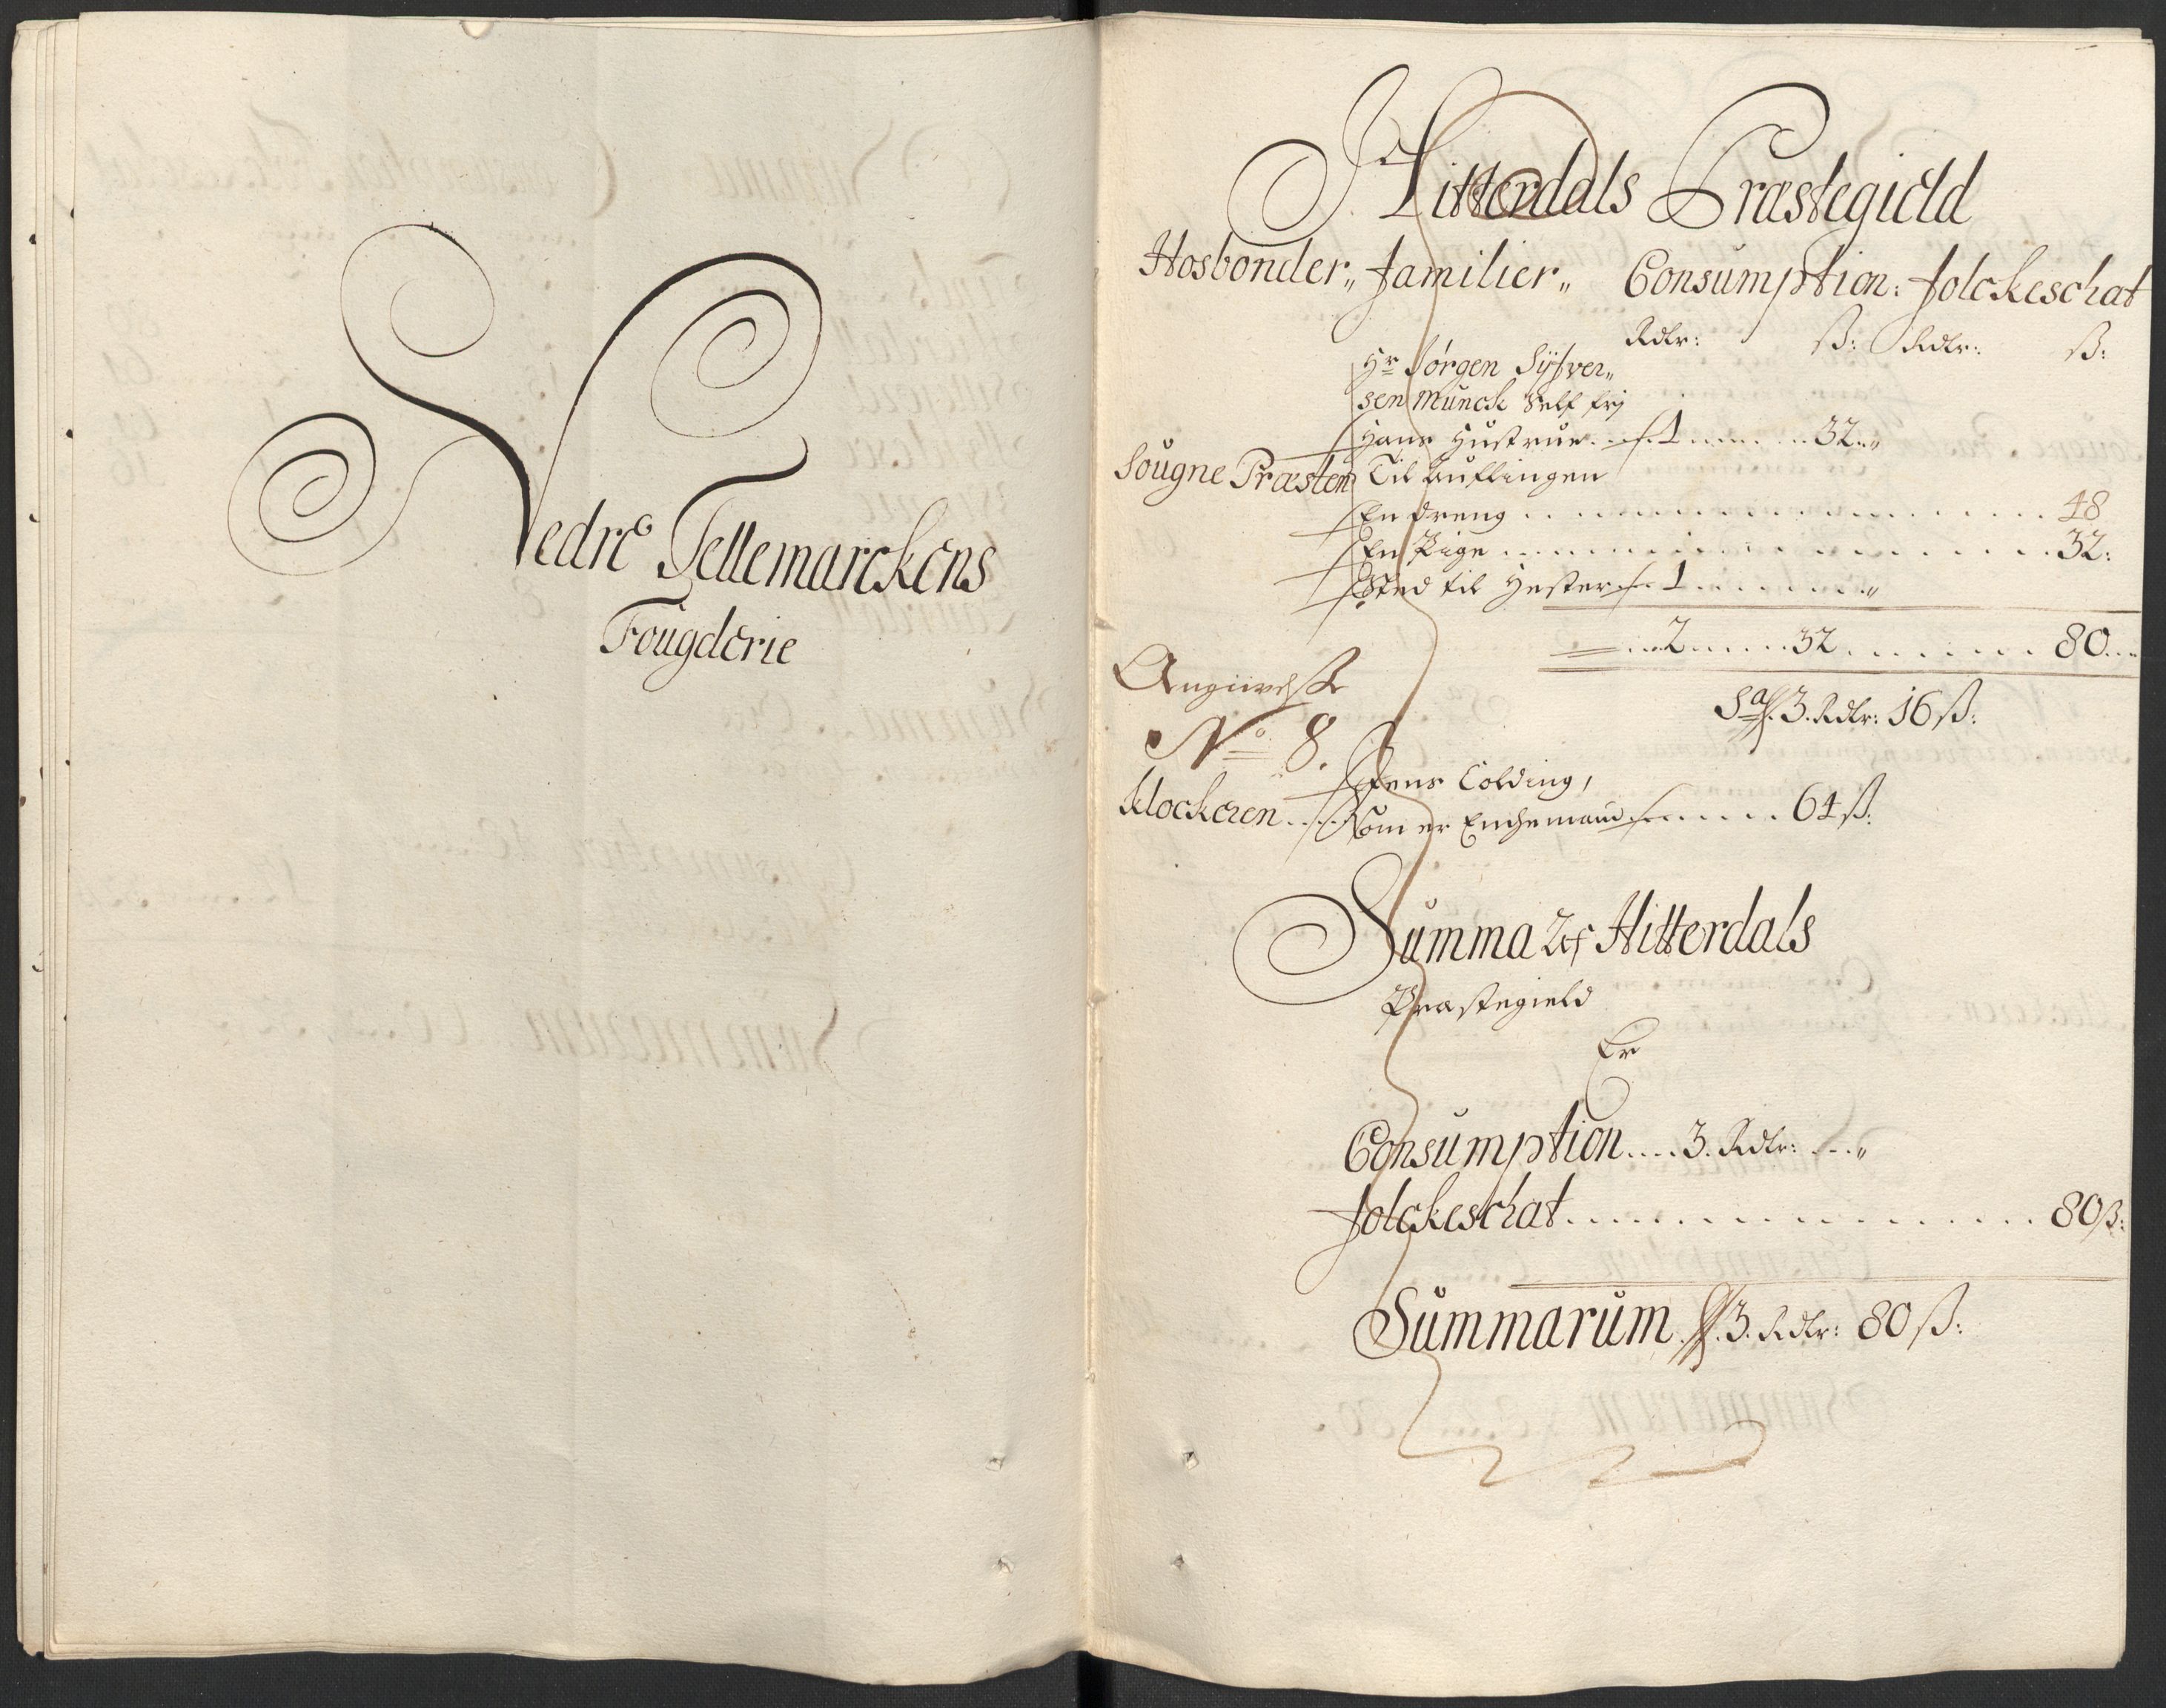 Nedre Tellemarckens
Fougderie
Hitterdals Præstegield
Hosbonder„ Familier„ Consumption: Folckeschat
Rdlr: ß: Rdlr: ß:
Hr Jørgen Syfver„
sen Munck Self fri
Hans Hustrue ... 1 ... 32 „
Sougne Præsten Til Auflingen
En Dreng ... 48
En Pige ... 32:
Sted til Hester ... 1 ... „
2 ... 32 ... 80 ...
Sa 3. Rdlr: 16 ß:
Angivelse
No 8.
Jens Colding,
Klockeren ... Som er Enchemand ... 64 ß:
Summa Af Hitterdals
Præstegield
Er
Consumption .... 3. Rdlr: ... „
Folckeschat ... 80 ß:
Summarum 3. Rdlr: 80 ß: